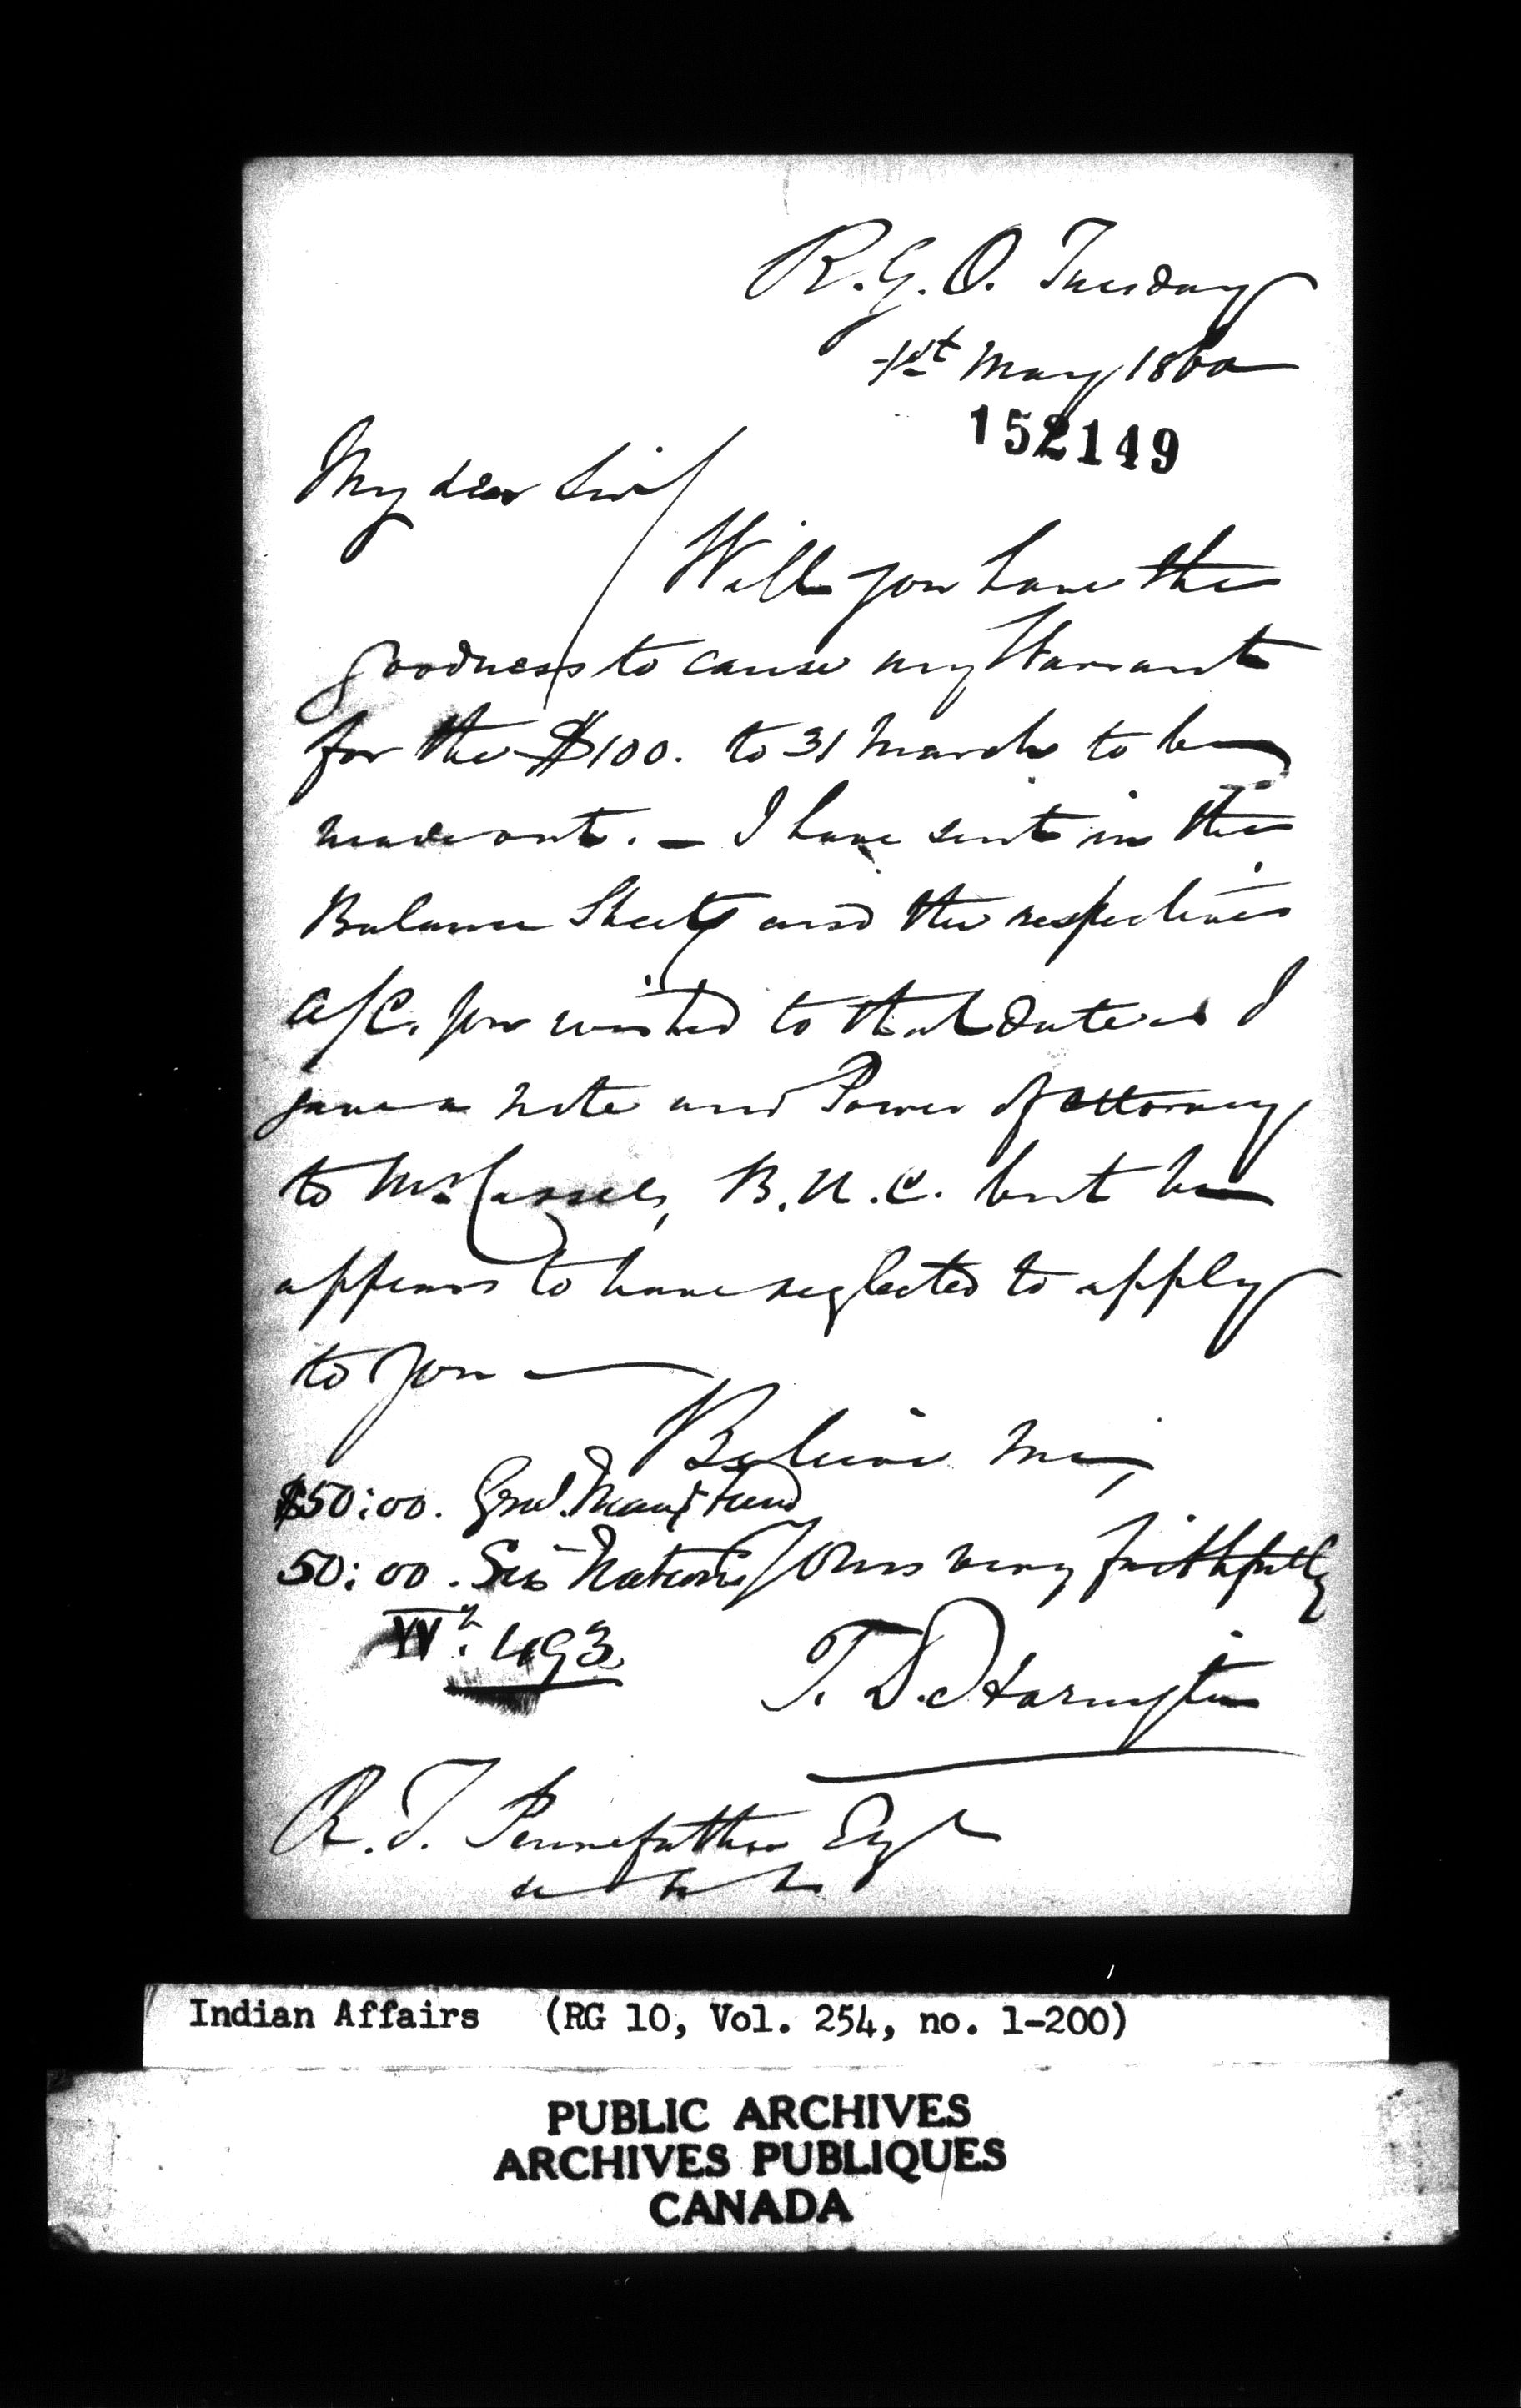 R.G.O. Tuesday
1st May 1860
152149
My dear Sir
Will you have the
goodness to cause my Warrant
for the $100. to 31 March to be
made out. — I have sent in the
Balance Sheets and the respective
A/C. you wished to that date & I
gave a note and Power of Attorney
to Mr. Cassels, B.U.C. but he
appears to have neglected to apply
to you —
Believe me,
$50:00. Genl. Mangt Fund
50:00. Six Nations
Yours very faithfully
Wt. 493
T. D. Harington
R. T. Pennefather Esqr
Indian Affairs (RG 10, Vol. 254, no. 1-200)
PUBLIC ARCHIVES
ARCHIVES PUBLIQUES
CANADA